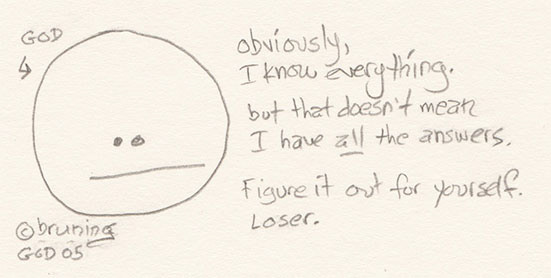 GOD
obviously,
I know everything.
but that doesn't mean
I have all the answers.
Figure it out for yourself.
Loser.
©bruning
GOD 05